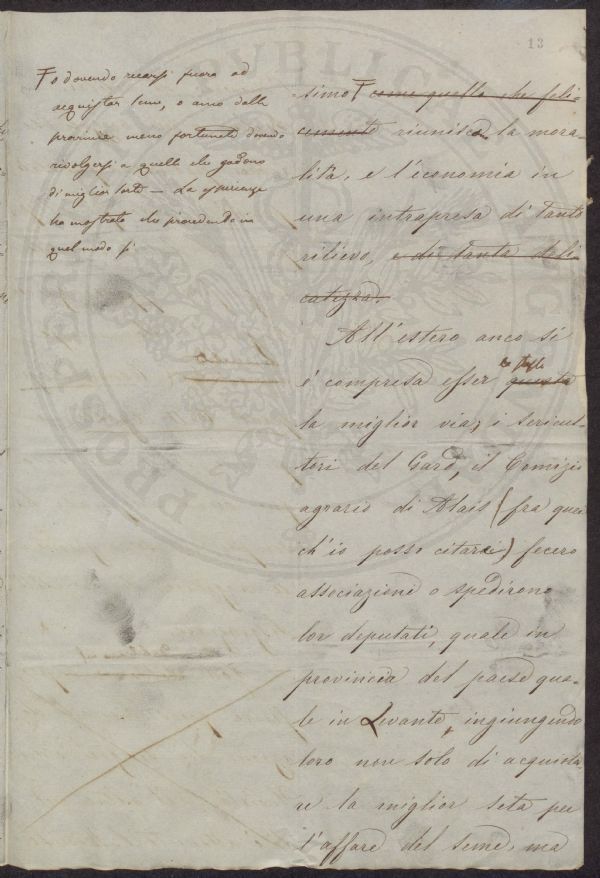 13
F o dovendo recarsi fuora ad
acquistar seme, o anco dalle
provincie meno fortunate dovendo
rivolgersi a quelle che godono
di miglior sorte – La esperienza
ha mostrato che procedendo in
quel modo si
simo F come quello che feli-
cemente riunisca la mora-
lità, e l'economia in
una intrapresa di tanto
rilievo, e di tanta deli-
catezza.
All'estero anco si
è compresa esser questa
la miglior via; i sericul-
tori del Gard, il Comizio
agrario di Alais (fra quei
ch'io posso citare) fecero
associazioni o spedirono
lor deputati, quale in
provincia del paese qua-
le in Levante, ingiungendo
loro non solo di acquista-
re la miglior seta per
l'affare del seme, ma